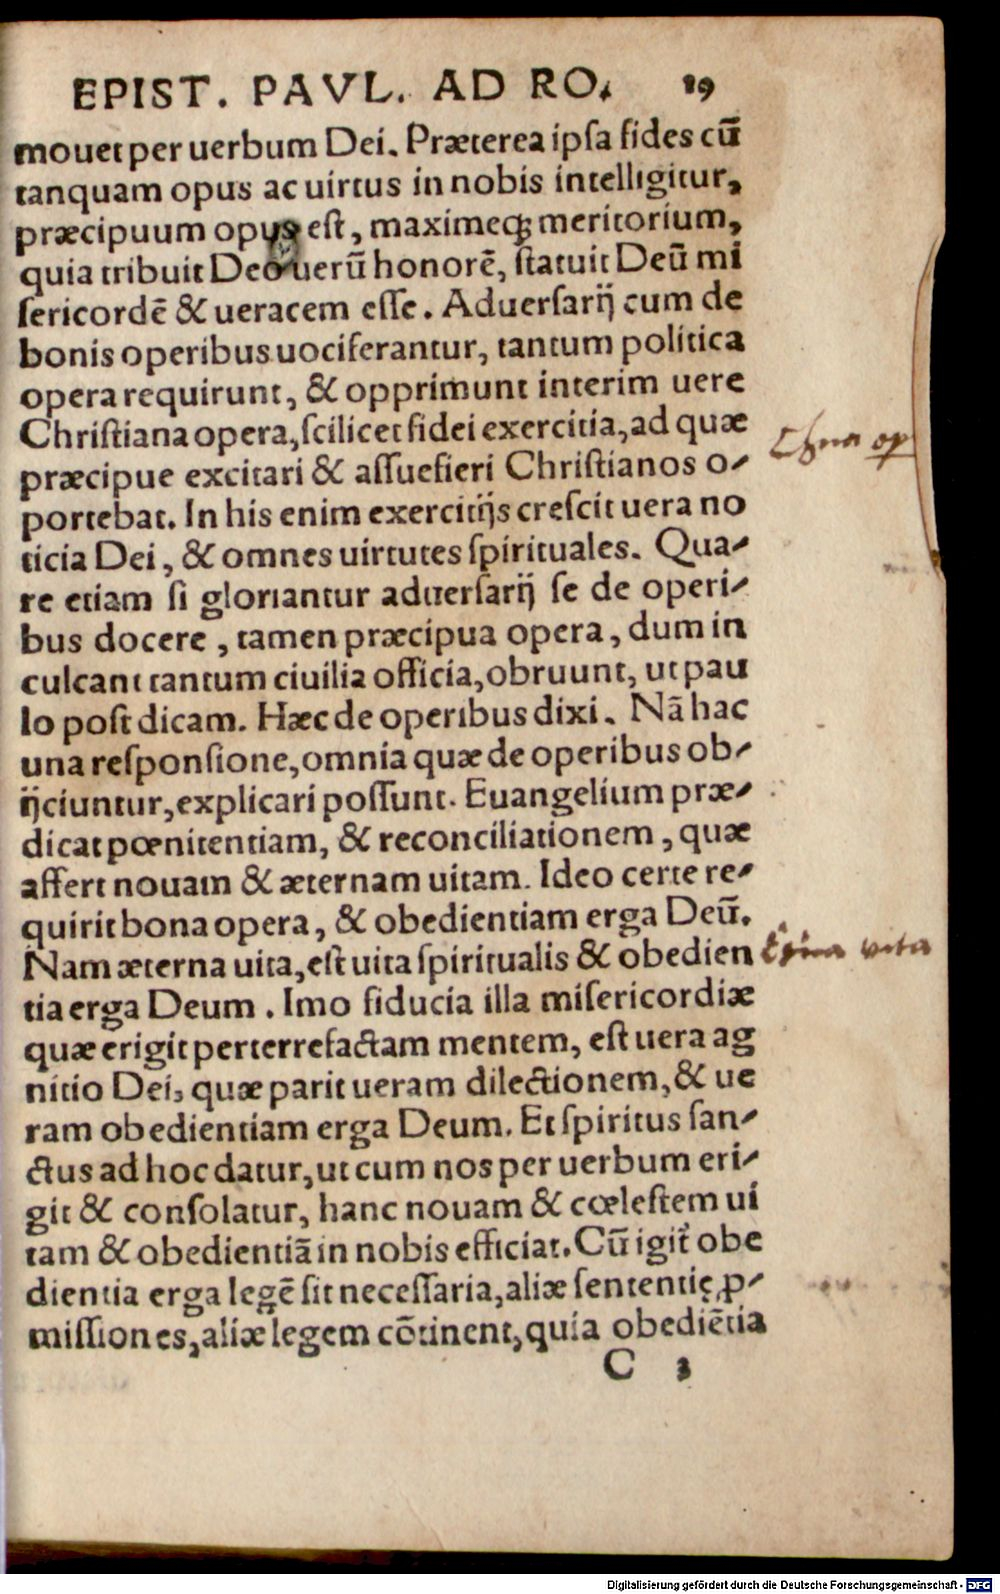 EPIST. PAVL. AD RO. 19
mouet per uerbum Dei. Præterea ipſa fides cũ
tanquam opus ac uirtus in nobis intelligitur,
præcipuum opus eſt, maximeq́; meritorium,
quia tribuit Deo uerũ honorẽ, ſtatuit Deũ mi
ſericordẽ & ueracem eſſe. Aduerſarij cum de
bonis operibus uociferantur, tantum politica
opera requirunt, & opprimunt interim uere
Chriſtiana opera, ſcilicet fidei exercitia, ad quæ
præcipue excitari & aſſuefieri Chriſtianos o-
portebat. In his enim exercitijs creſcit uera no
ticia Dei, & omnes uirtutes ſpirituales. Qua-
re etiam ſi gloriantur aduerſarij ſe de operi-
bus docere, tamen præcipua opera, dum in
culcant tantum ciuilia officia, obruunt, ut pau
lo poſt dicam. Hæc de operibus dixi. Nã hac
una reſponſione, omnia quæ de operibus ob-
ijciuntur, explicari poſſunt. Euangelium præ-
dicat pœnitentiam, & reconciliationem, quæ
affert nouam & æternam uitam. Ideo certe re-
quirit bona opera, & obedientiam erga Deũ.
Nam æterna uita, eſt uita ſpiritualis & obedien
tia erga Deum. Imo fiducia illa miſericordiæ
quæ erigit perterrefactam mentem, eſt uera ag
nitio Dei, quæ parit ueram dilectionem, & ue
ram obedientiam erga Deum. Et ſpiritus ſan-
ctus ad hoc datur, ut cum nos per uerbum eri-
git & conſolatur, hanc nouam & cœleſtem ui
tam & obedientiã in nobis efficiat. Cũ igit̃ obe
dientia erga legẽ ſit neceſſaria, aliæ ſententię ꝓ-
miſſiones, aliæ legem cõtinent, quia obediẽtia
C 3
op
vita
Digitalisierung gefördert durch die Deutsche Forschungsgemeinschaft - DFG